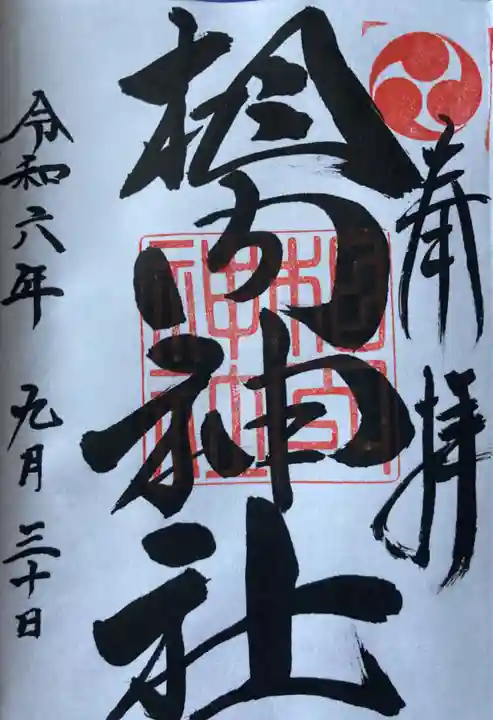 奉拝
神社
令和六年 九月 三十日